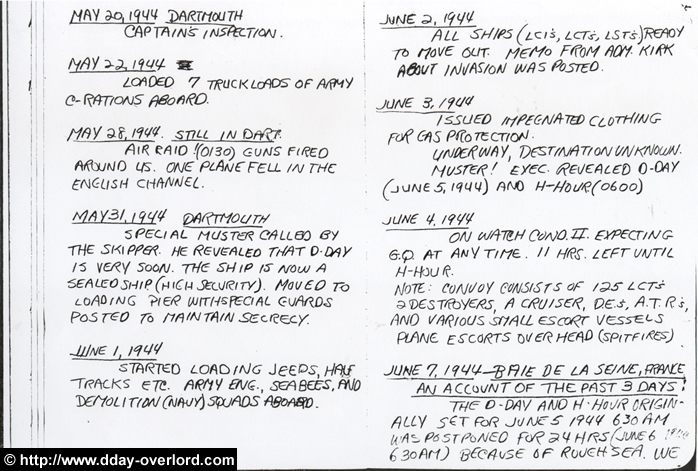 MAY 20, 1944 DARTMOUTH
CAPTAIN'S INSPECTION.
MAY 22, 1944
LOADED 7 TRUCKLOADS OF ARMY
C-RATIONS ABOARD.
MAY 28, 1944. STILL IN DART.
AIR RAID! (0130) GUNS FIRED
AROUND US. ONE PLANE FELL IN THE
ENGLISH CHANNEL.
MAY 31, 1944 DARTMOUTH
SPECIAL MUSTER CALLED BY
THE SKIPPER. HE REVEALED THAT D-DAY
IS VERY SOON. THE SHIP IS NOW A
SEALED SHIP (HIGH SECURITY). MOVED TO
LOADING PIER WITH SPECIAL GUARDS
POSTED TO MAINTAIN SECRECY.
JUNE 1, 1944
STARTED LOADING JEEPS, HALF
TRACKS ETC. ARMY ENG., SEABEES, AND
DEMOLITION (NAVY) SQUADS ABOARD.
JUNE 2, 1944
ALL SHIPS (LCI's, LCT's, LST's) READY
TO MOVE OUT. MEMO FROM ADM. KIRK
ABOUT INVASION WAS POSTED.
JUNE 3, 1944
ISSUED IMPEGNATED CLOTHING
FOR GAS PROTECTION.
UNDERWAY, DESTINATION UNKNOWN.
MUSTER! EXEC. REVEALED D-DAY
(JUNE 5, 1944) AND H-HOUR (0600)
JUNE 4, 1944
ON WATCH COND. II. EXPECTING
G.Q. AT ANY TIME. 11 HRS. LEFT UNTIL
H-HOUR.
NOTE: CONVOY CONSISTS OF 125 LCT's
2 DESTROYERS, A CRUISER, D.E.'s, A.T.R.'s,
AND VARIOUS SMALL ESCORT VESSELS
PLANE ESCORTS OVERHEAD (SPITFIRES)
JUNE 7, 1944 - BAIE DE LA SEINE, FRANCE
AN ACCOUNT OF THE PAST 3 DAYS!
THE D-DAY AND H-HOUR ORIGIN-
ALLY SET FOR JUNE 5 1944 630 AM
WAS POSTPONED FOR 24 HRS (JUNE 6 1944
630 AM) BECAUSE OF ROUGH SEA. WE
© http://www.dday-overlord.com